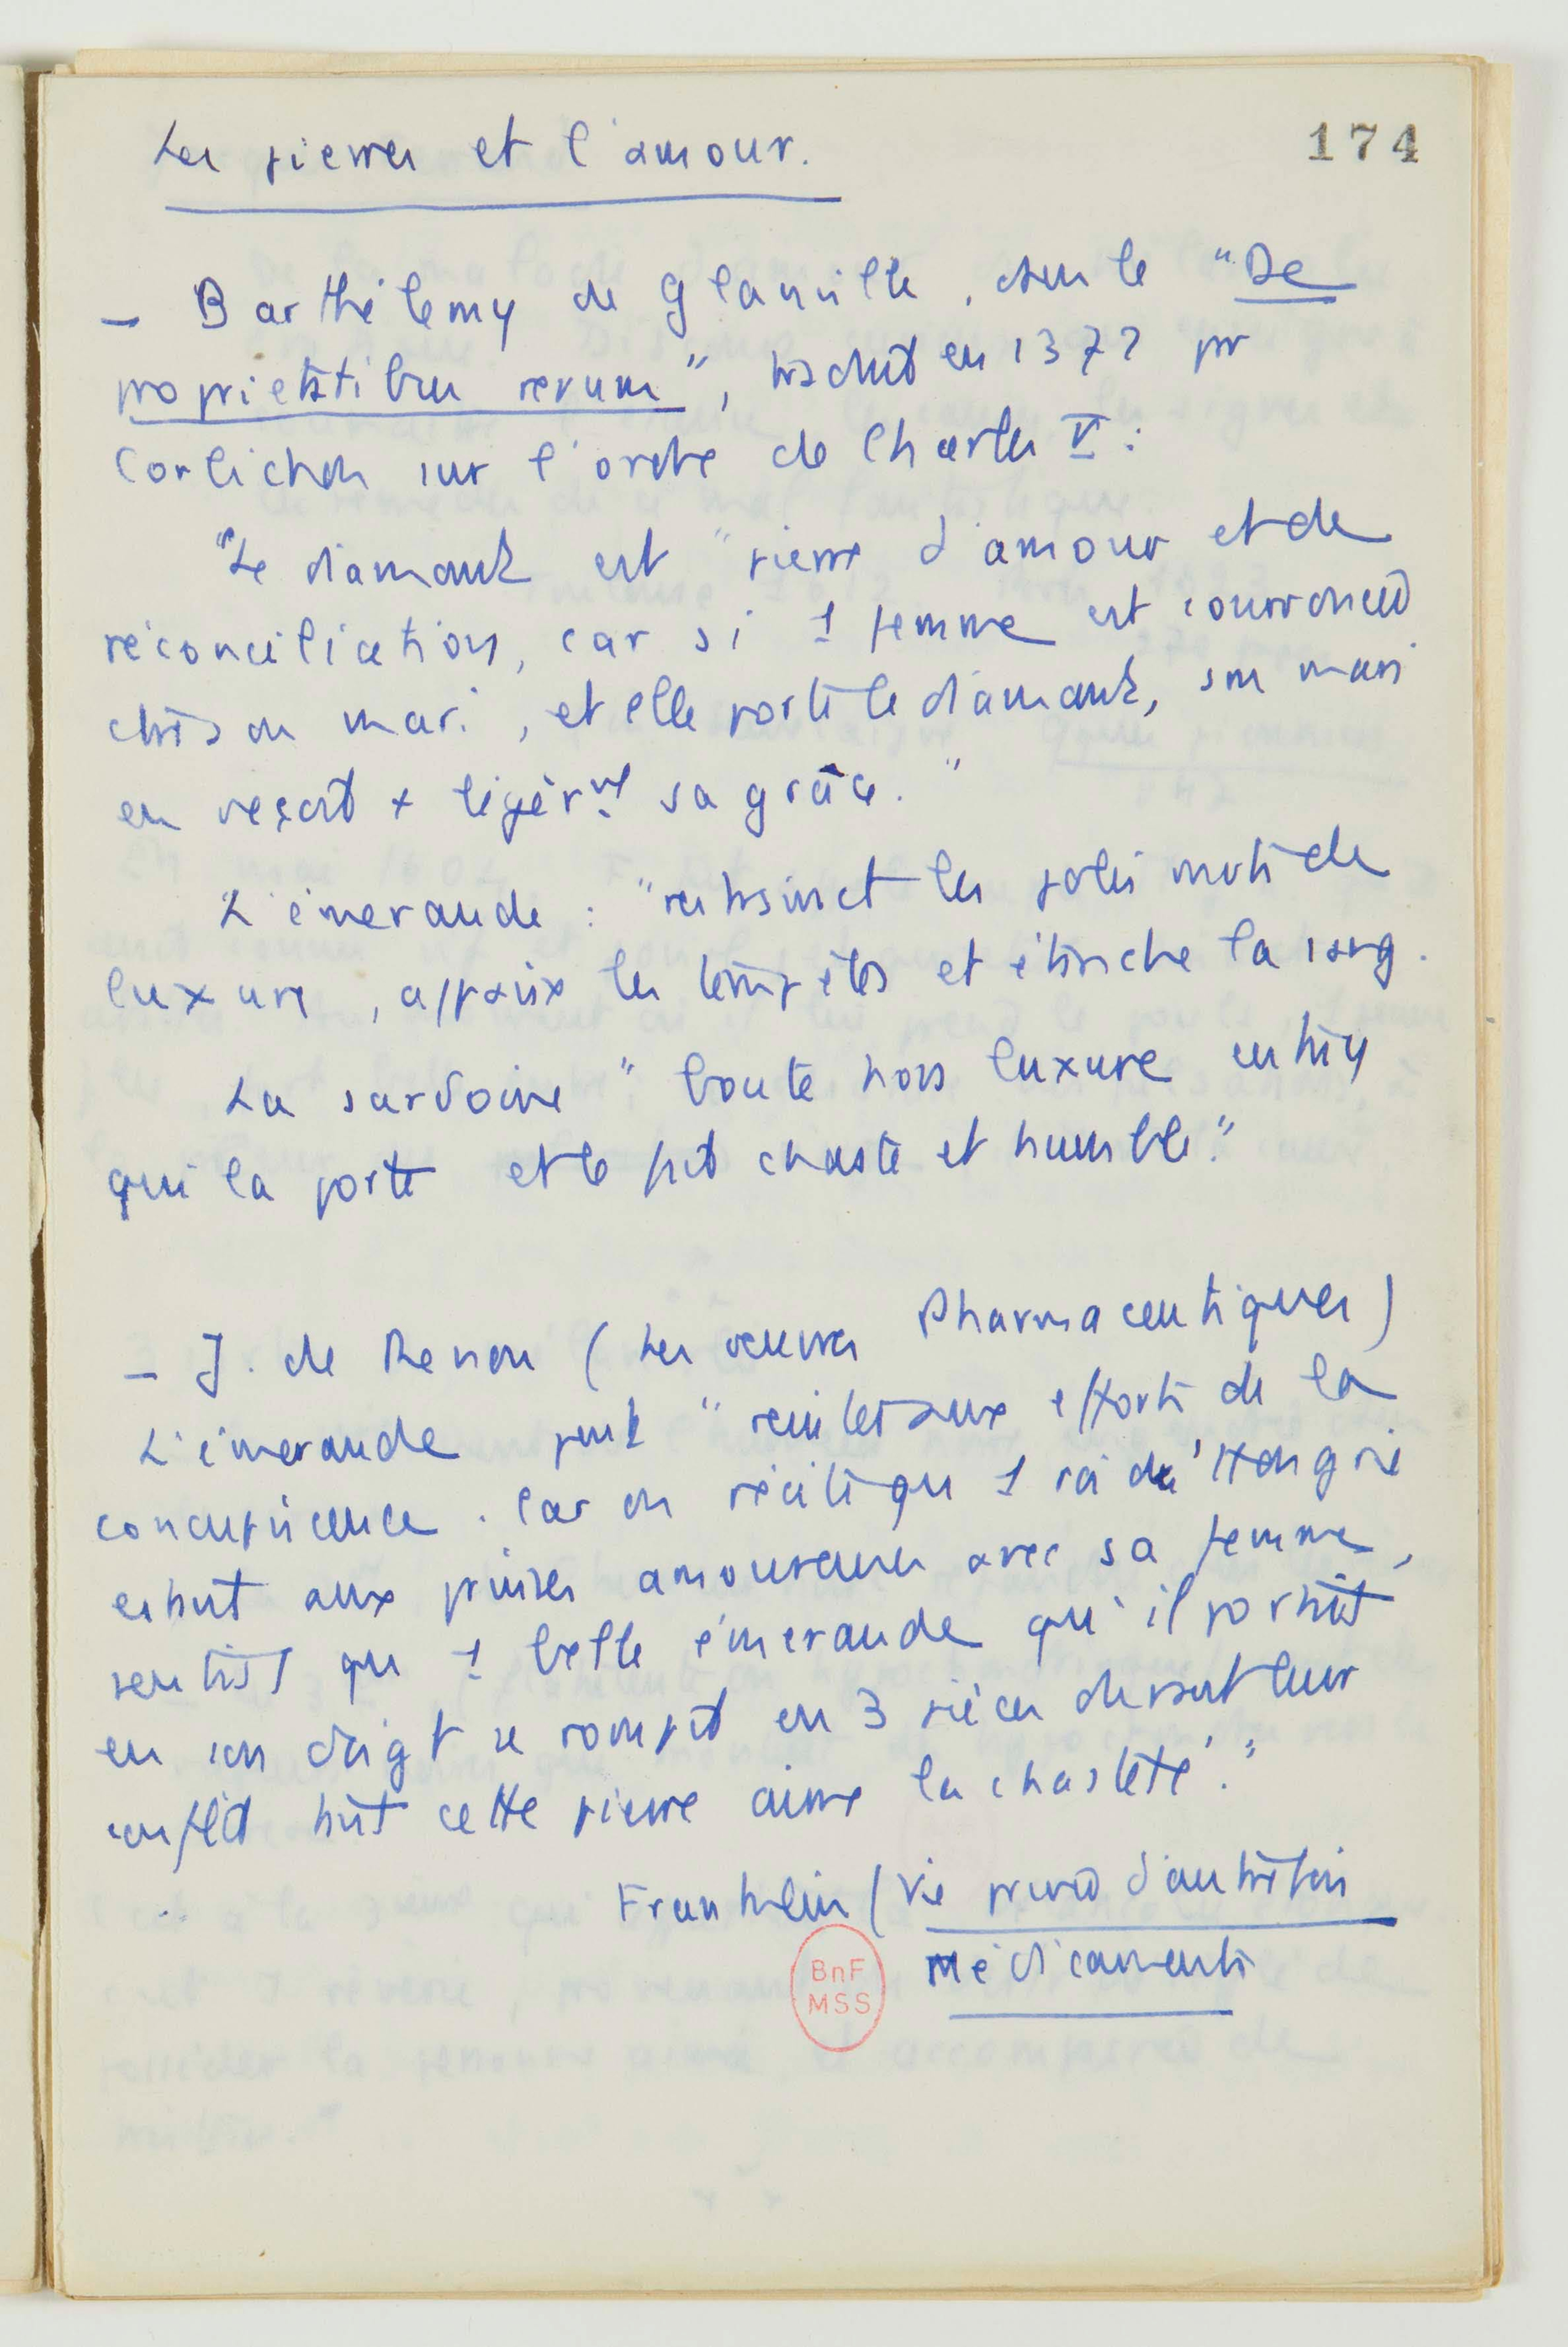 Les pierres et l'amour.
174
— Barthélemy de Glanville, dans le "De
proprietatibus rerum", traduit en 1372 par
Corbichon sur l'ordre de Charles V :
"Le diamant est "pierre d'amour et de
réconciliation, car si 1 femme est courroucée
chts on mari, et elle porte le diamant, son mari
en reçoit + légèrmt sa grâce."
L'émeraude : "restraint les folies mots de
luxure, appaise les tempêtes et étanche la sang.
La sardoine "boute hors luxure
qui la porte et le fait chaste et humble."
— J. de Renou (Les oeuvres Pharmaceutiques)
L'émeraude peut "résister aux efforts de la
concupiscence. Car on récite que 1 roi de Hongrie
estant aux prises amoureuses avec sa femme,
sentist que 1 belle émeraude qu'il portait
en son doigt se rompit en 3 pièces durant leur
conflict tant cette pierre aime la chasteté."
Franklin (Vie privée d'autrefois
Médicaments
BnF
MSS